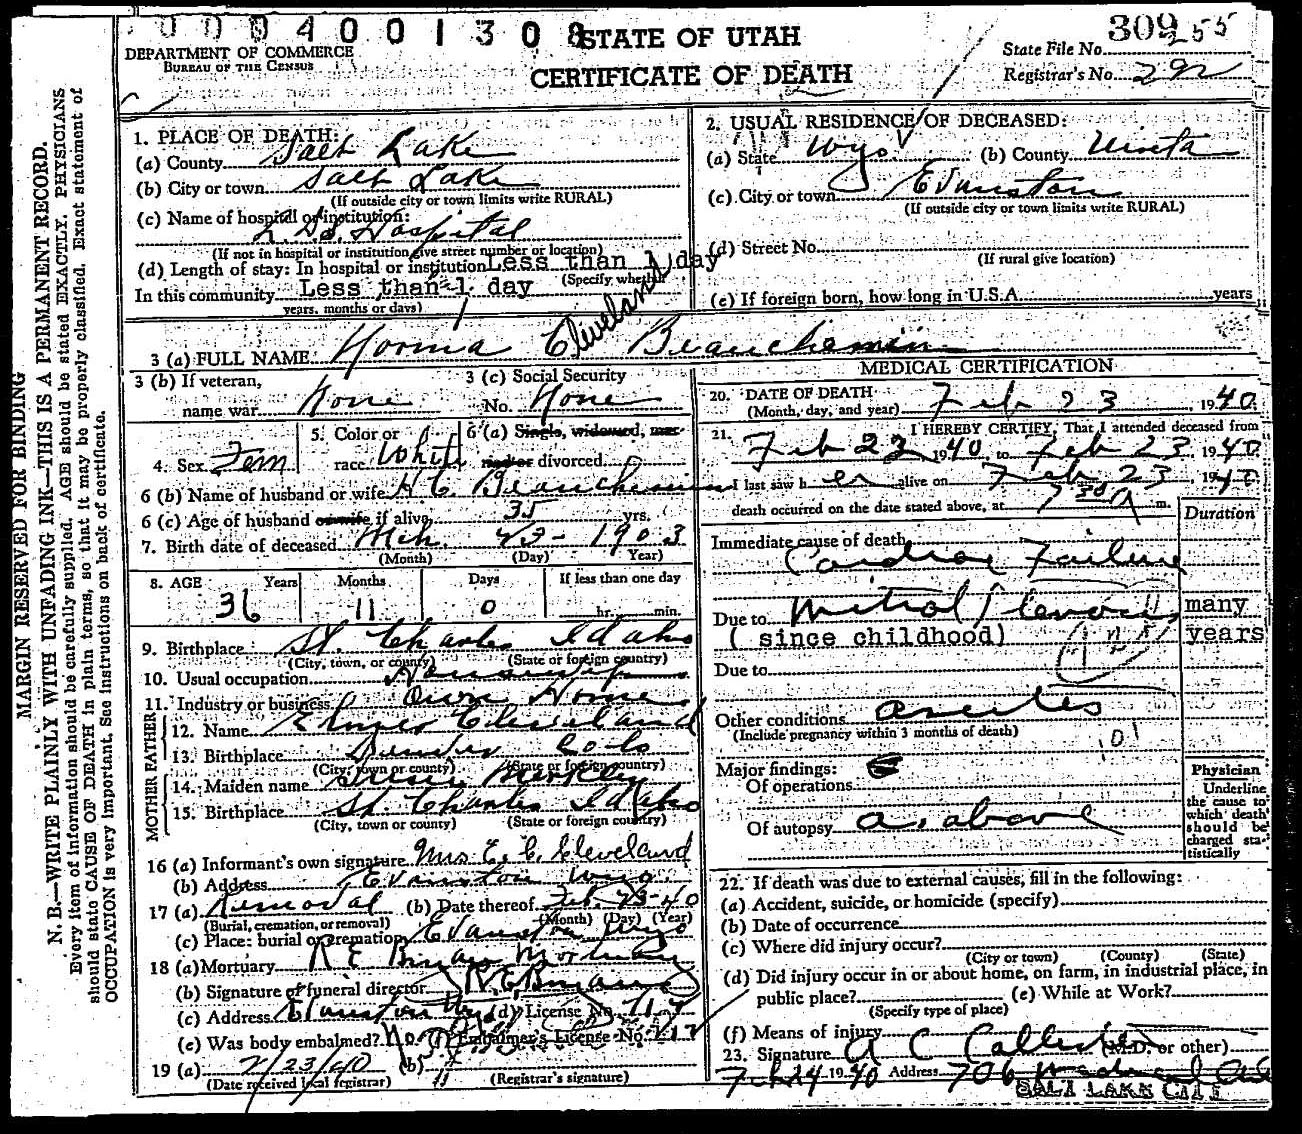 0004001308
STATE OF UTAH
CERTIFICATE OF DEATH
DEPARTMENT OF COMMERCE
BUREAU OF THE CENSUS
30955
State File No.
Registrar's No. 292
MARGIN RESERVED FOR BINDING
N. B.—WRITE PLAINLY WITH UNFADING INK—THIS IS A PERMANENT RECORD.
Every item of information should be carefully supplied. AGE should be stated EXACTLY. PHYSICIANS
should state CAUSE OF DEATH in plain terms, so that it may be properly classified. Exact statement of
OCCUPATION is very important. See instructions on back of certificate.
1. PLACE OF DEATH:
(a) County Salt Lake
(b) City or town Salt Lake
(If outside city or town limits write RURAL)
(c) Name of hospital or institution:
L.D.S. Hospital
(If not in hospital or institution give street number or location)
(d) Length of stay: In hospital or institution Less than 1 day
(Specify whether
In this community Less than 1 day
years, months or days)
2. USUAL RESIDENCE OF DECEASED:
(a) State Wyo (b) County Uinta
(c) City or town Evanston
(If outside city or town limits write RURAL)
(d) Street No.
(If rural give location)
(e) If foreign born, how long in U.S.A. years
3 (a) FULL NAME Norma Cleveland Beauchemin
3 (b) If veteran, name war None
3 (c) Social Security No. None
4. Sex Fem
5. Color or race White
6 (a) Single, widowed, married or divorced
6 (b) Name of husband or wife H C. Beauchemin
6 (c) Age of husband or wife if alive 35 yrs.
7. Birth date of deceased Mch. 23 - 1903
(Month) (Day) (Year)
8. AGE Years Months Days If less than one day
36 11 0 hr. min.
9. Birthplace St. Charles Idaho
(City, town, or county) (State or foreign country)
10. Usual occupation Housewife
11. Industry or business Own Home
FATHER
12. Name Elmer Cleveland
13. Birthplace Denver Colo
(City, town or county) (State or foreign country)
MOTHER
14. Maiden name Berkley
15. Birthplace St. Charles Idaho
(City, town or county) (State or foreign country)
16 (a) Informant's own signature Mrs E. C. Cleveland
(b) Address Evanston Wyo.
17 (a) Removal (b) Date thereof Feb. 23-40
(Burial, cremation, or removal) (Month) (Day) (Year)
(c) Place: burial or cremation Evanston Wyo
18 (a) Mortuary R E Mortuary
(b) Signature of funeral director R. E.
(c) Address Evanston Wyo (d) License No. 717
(e) Was body embalmed? Embalmer's License No.
19 (a) 2/23/40 (b)
(Date received local registrar) (Registrar's signature)
MEDICAL CERTIFICATION
20. DATE OF DEATH
(Month, day, and year) Feb 23, 1940.
21. I HEREBY CERTIFY, That I attended deceased from
Feb 22 1940 to Feb 23 1940
I last saw her alive on Feb 23 1940
death occurred on the date stated above, at 7 30 A m.
Duration
Immediate cause of death
Cardiac Failure
Due to Mitral Stenosis many
( since childhood) years
Due to
Other conditions ascites
(Include pregnancy within 3 months of death)
Major findings:
Of operations
Of autopsy as above
Physician
Underline
the cause to
which death
should be
charged sta-
tistically
22. If death was due to external causes, fill in the following:
(a) Accident, suicide, or homicide (specify)
(b) Date of occurrence
(c) Where did injury occur?
(City or town) (County) (State)
(d) Did injury occur in or about home, on farm, in industrial place, in
public place? (e) While at Work?
(Specify type of place)
(f) Means of injury
23. Signature A C Callister (M.D. or other)
Feb 24 1940 Address 706 Medical Arts
SALT LAKE CITY